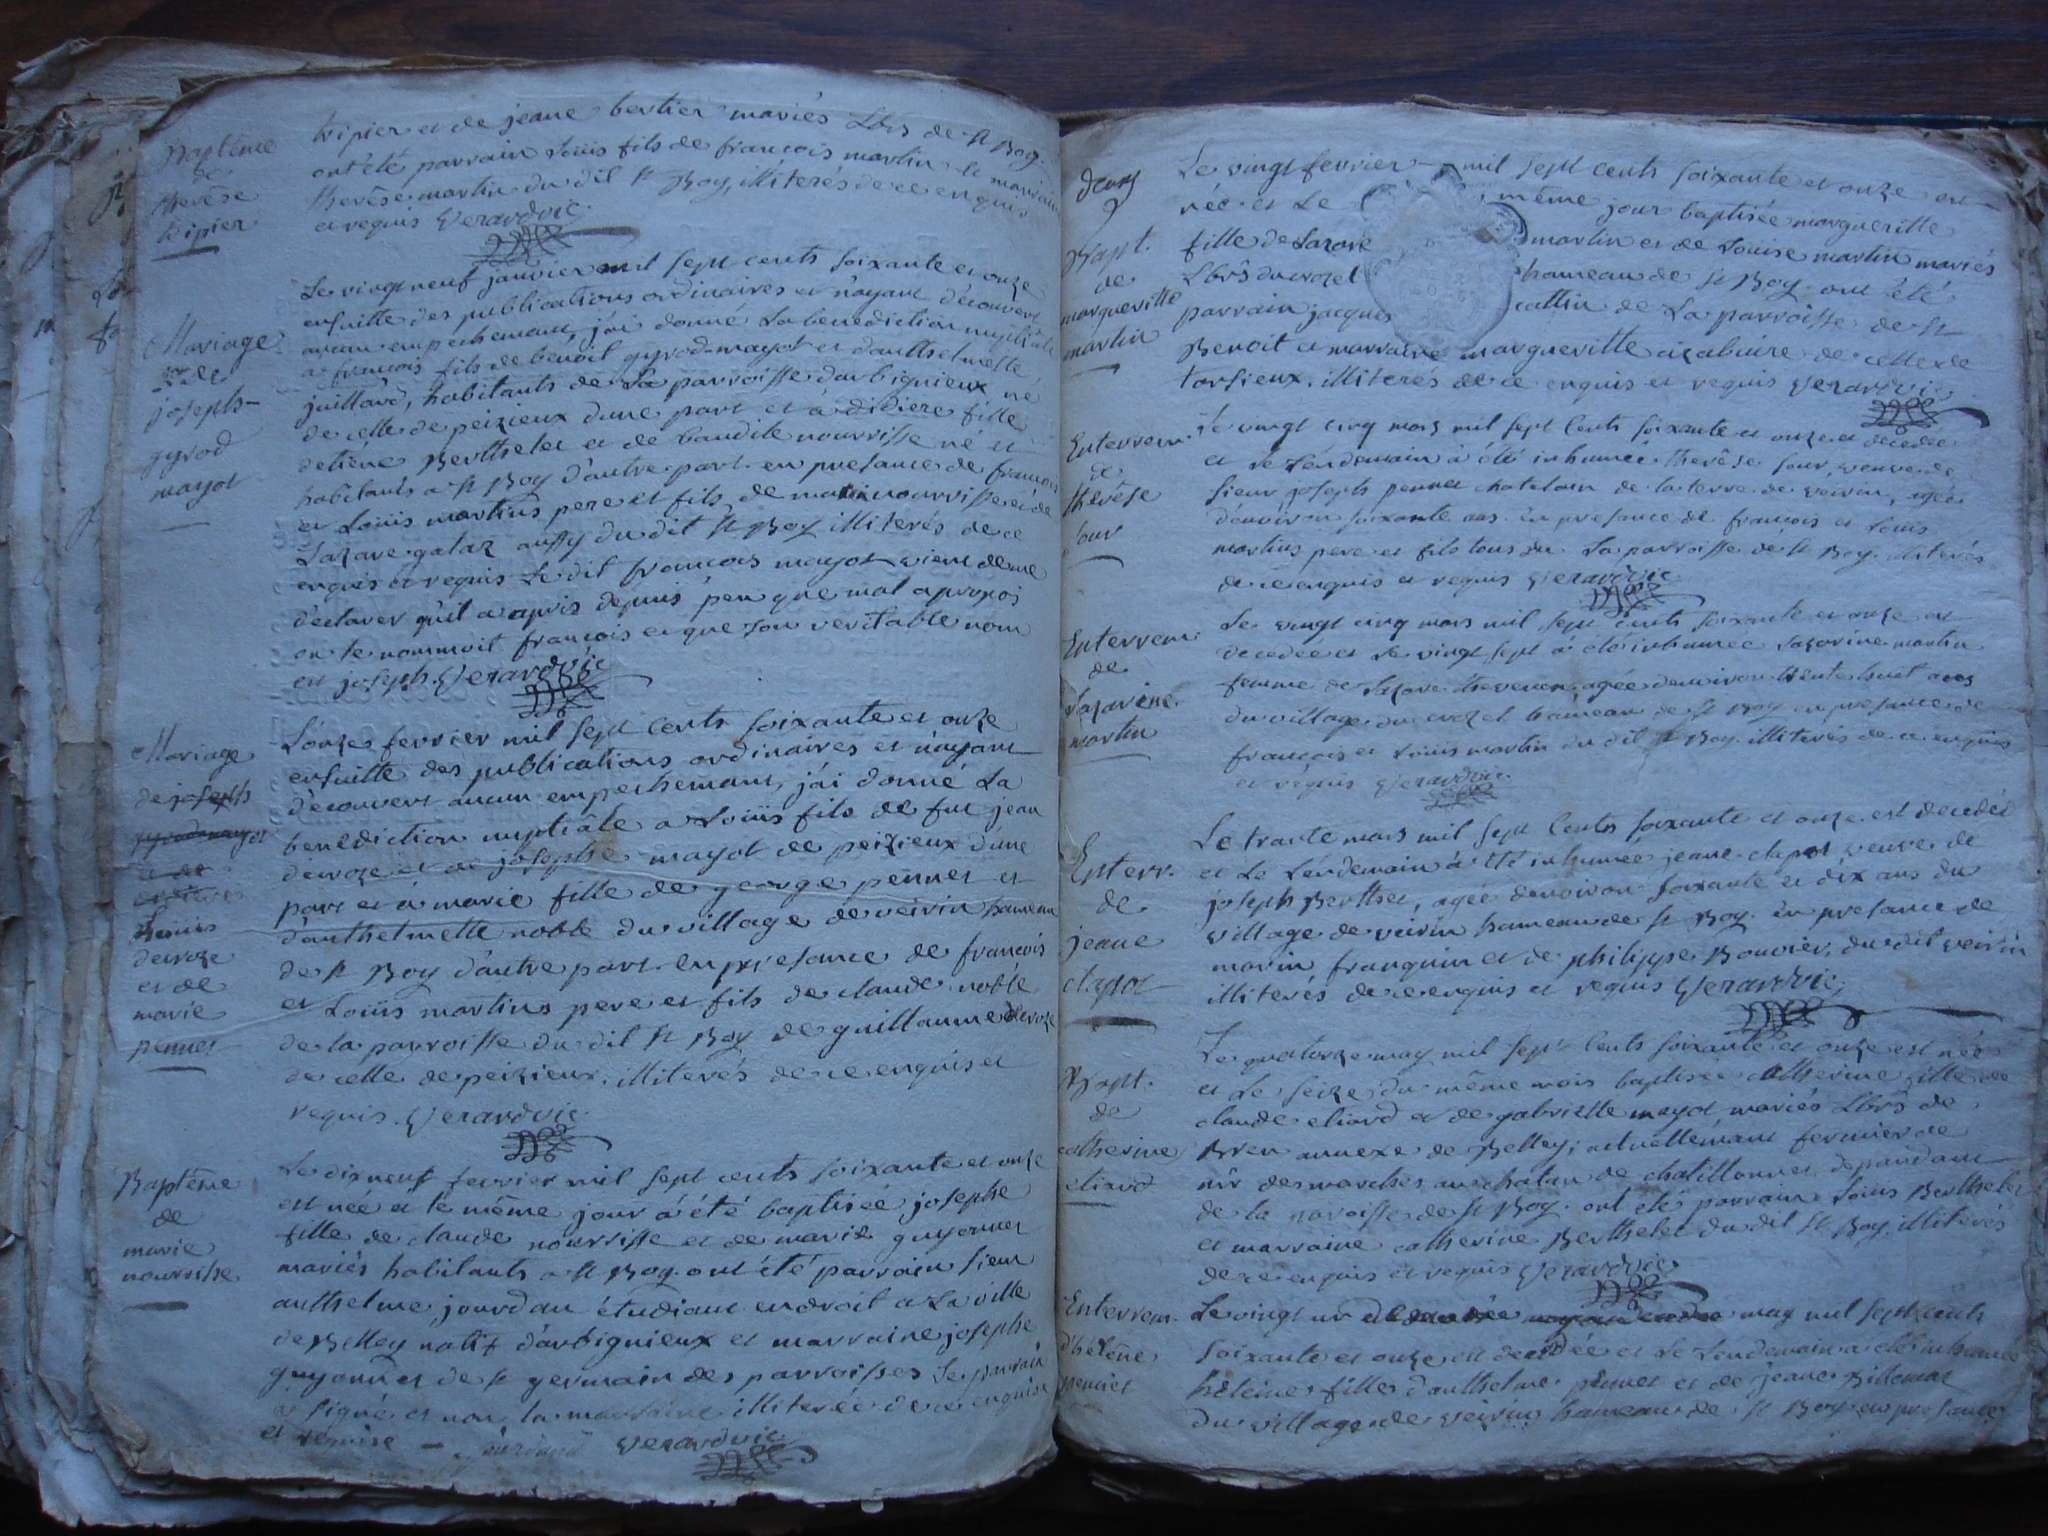 Baptême
de
therêse
tripier
tripier et de jeane bertier mariés Lbrs de st Boy.
ont été parrain Loüis fils de francois martin et marraine
therêse martin du dit st Boy, illiterés de ce enquis
et requis Verardvic
Mariage
de
joseph
gyrod
mayot
Le vingt neuf janvier mil sept cents soixante et onze
ensuitte des publications ordinaires et n'ayant découvert
aucun empechemant, j'ai donné La benediction nuptiale
a francois fils de benoit gyrod-mayot et d'anthelmette
juillard, habitants de La parroisse d'arbignieux né
de celle de peizieux d'une part et à didiere fille
d'etiene Berthelet et de baudite nourrisse né et
habitants a st Boy d'autre part. en presance de francois
et Loüis martins pere et fils de matin nourrisse et de
Lazare galaz aussy du dit st Boy illiterés de ce
enquis et requis Le dit francois mayot vient de me
déclarer qu'il a apris depuis peu que mal a propos
on le nommoit francois et que son veritable nom
est joseph. Verardvic
Mariage
de joseph
gyrod mayot
et de
Loüis
decroze
et de
marie
pennet
L'onze fevrier mil sept cents soixante et onze
ensuitte des publications ordinaires et n'ayant
découvert aucun empechemant, j'ai donné La
benediction nuptiâle a Loüis fils de fut jean
decroze et de josephe mayot de peizieux d'une
part et à marie fille de george pennet et
d'anthelmette noble du village de veirin hameau
de st Boy d'autre part. en presance de francois
et Loüis martins pere et fils de claude noble
de la parroisse du dit st Boy de guillaume decroze
de celle de peizieux. illiterés de ce enquis et
requis. Verardvic
Baptême
de
marie
nourrisse
Le dixneuf fevrier mil sept cents soixante et onze
est née et le même jour à été baptisée josephe
fille de claude nourrisse et de marie guyonnet
mariés habitants a st Boy. ont été parrain sieur
anthelme jourdan étudiant en droit a La ville
de Belley natif d'arbignieux et marraine josephe
guyonnet de st germain des parroisses Le parrain
à signé et non la marraine illiterée de ce enquise
et requise - jourdan Verardvic
Bapt.
de
margueritte
martin
Le vingt fevrier mil sept cents soixante et onze est
née et Le même jour baptisée margueritte
fille de Lazare martin et de Louise martin mariés
Lbrs du crozet hameau de st Boy. ont été
parrain jacques cattin de La parroisse de st
Benoit et marraine margueritte de celle de
illiterés de ce enquis et requis Verardvic
Enterrem.
de
therêse
Le vingt cinq mars mil sept cents soixante et onze et decedée
et Le Lendemain à été inhumée therêse veuve de
sieur joseph pennet chatelain de la terre de veirin, agée
d'environ soixante ans. en presance de francois et Loüis
martins pere et fils tous du La parroisse de st Boy. illiterés
de ce enquis et requis Verardvic
Enterrem.
de
Lazarine
martin
Le vingt cinq mars mil sept cents soixante et onze est
decedée et Le vingt sept à été inhumée Lazarine martin
femme de Lazare thevenon agée d'environ trente huit ans
du village du crozet hameau de st Boy en presance de
francois et Loüis martin du dit st Boy. illiterés de ce enquis
et requis Verardvic.
Enterr.
de
jeane
clapot
Le trante mars mil sept cents soixante et onze est decedée
et Le Lendemain à été inhumée jeane clapot veuve de
joseph Berthet, agée d'environ soixante et dix ans du
village de veirin hameau de st Boy. en presance de
marin franquin et de philippe Bouvier, du dit veirin
illiterés de ce enquis et requis Verardvic
Bapt.
de
catherine
eliard
Le quatorze may mil sept cents soixante et onze est née
et Le seize du même mois baptisée catherine fille de
claude eliard et de gabrielle mayot mariés Lbrs de
Bren annexe de Belley, actuellemant fermier de
mr desmarches au chatau de chatillonnet dependant
de la paroisse de st Boy. ont été parrain Loüis Berthelet
et marraine catherine Berthelet du dit st Boy. illiterés
de ce enquis et requis Verardvic
Enterrem.
d'heleine
pennet
Le vingt un may mil sept cents
soixante et onze est decedée et Le Lendemain a été inhumée
heleine fille d'anthelme pennet et de jeane Billomaz
du village de veirin hameau de st Boy en presance